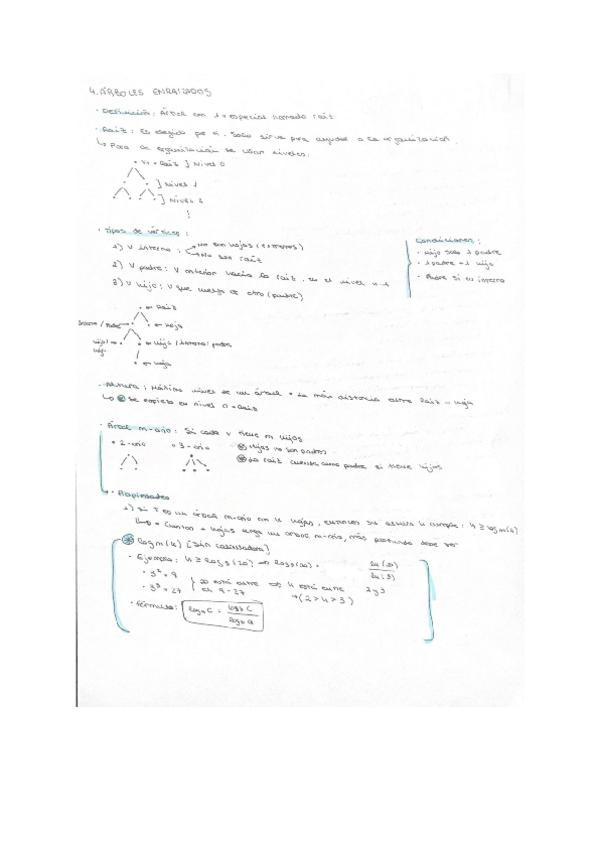 4. ÁRBOLES ENRAIZADOS
· Definición: Árbol con 1 v especial llamado raíz
· Raíz: Es elegido por ti. Solo sirve para ayudar a la organización.
↳ Para la organización se usan niveles:
Raíz } Nivel 0
} Nivel 1
} Nivel 2
· Tipos de vértices:
1) V interno: No son hojas (extremos)
No son raíz
2) V padre: V anterior hacia la raíz, en el nivel n-1
3) V hijo: V que cuelga de otro (padre)
Condiciones:
- Hijo solo 1 padre
- 1 padre → 1 hijo
- Padre si es interno
← Raíz
Interno / Padre ← Hoja
Hijo / Hoja ← Hijo / Interno / padre
← Hoja
· Altura: Máximo nivel de un árbol = La más distancia entre Raíz - Hoja
↳ Se empieza en nivel 0 = Raíz
· Árbol m-ario: Si cada v tiene m hijos
• 2-ario • 3-ario Hojas no son padres
La raíz cuenta como padre si tiene hijos
· Propiedades
1) Si T es un árbol m-ario con k hojas, entonces su altura h cumple: h ≥ log m(k)
Cuantas + hojas tenga un árbol m-ario, más profundo debe ser
log m(k) [Sin calculadora]
· Ejemplo: h ≥ log3(20) → log3(20) = ln(20) / ln(3)
· 3² = 9 } 20 está entre 9 - 27 ⇒ h está entre 2 y 3
· 3³ = 27 → (2 > h > 3)
· Fórmula: logₐ C = log_b C / log_b a